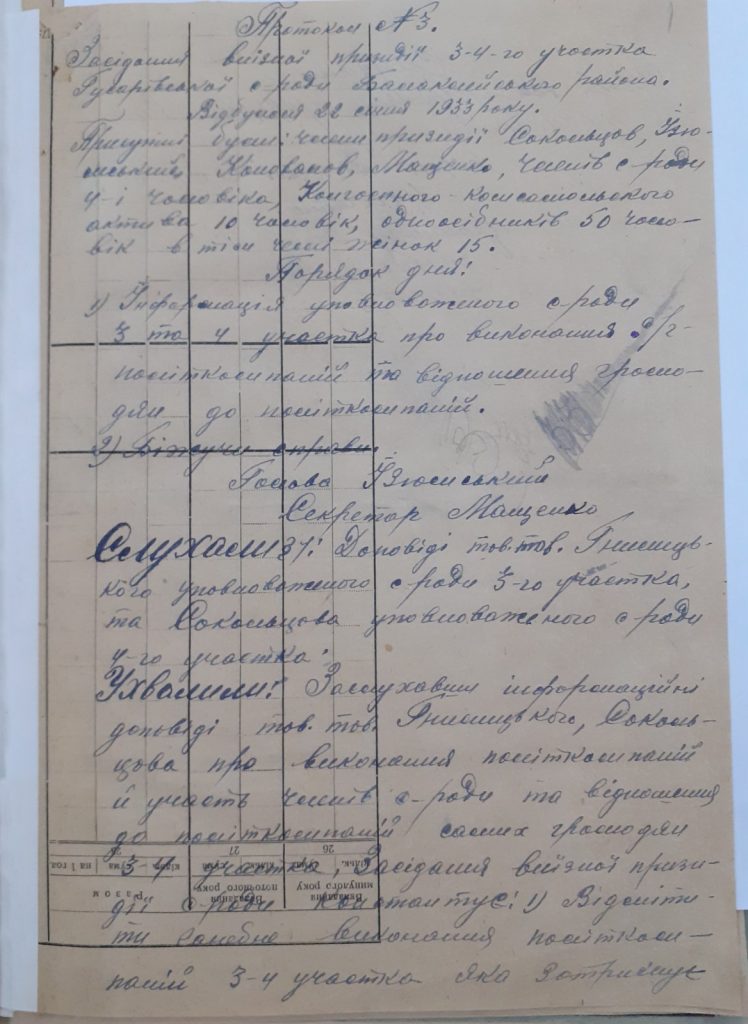 Протокол №3.
Засідання виїзної призидії 3-4-го участка
Гусарівської с-ради Балаклійського района.
Відбулася 22 січня 1933 року.
Присутні були: члени призидії Сокольцов, Ізю-
мський, Коновалов, Мащенко, членів с-ради
4-і чоловіка, Колгоспного-комсомольського
актива 10 чоловік, одноосібників 50 чоло-
вік в тім числі жінок 15.
Порядок дня:
1) Інформація уповноваженого с-ради
3 та 4 участка про виконання г-
політкомпаній та відношення грома-
дян до політкомпаній.
2) Біжучи справи.
Голова Ізюмський
Секретар Мащенко
Слухали: Доповіді тов. тов. Гнилиць-
кого уповноваженого с-ради 3-го участка,
та Сокольцова уповноваженого с-ради
4-го участка.
Ухвалили: Заслухавши інформаційні
доповіді тов. тов. Гнилицького, Соколь-
цова про виконання політкомпаній
й участь членів с-ради та відношення
до політкомпаній самих громодян
3-4 участка, Засідання виїзної призи-
дії с-ради констатує: 1) Відміти-
ти ганебне виконання політком-
паній 3-4 участка яка затримує
26
27
Вкладання минулого року
Вкладання поточного року
Разом
кільк.
сума
на 1 год